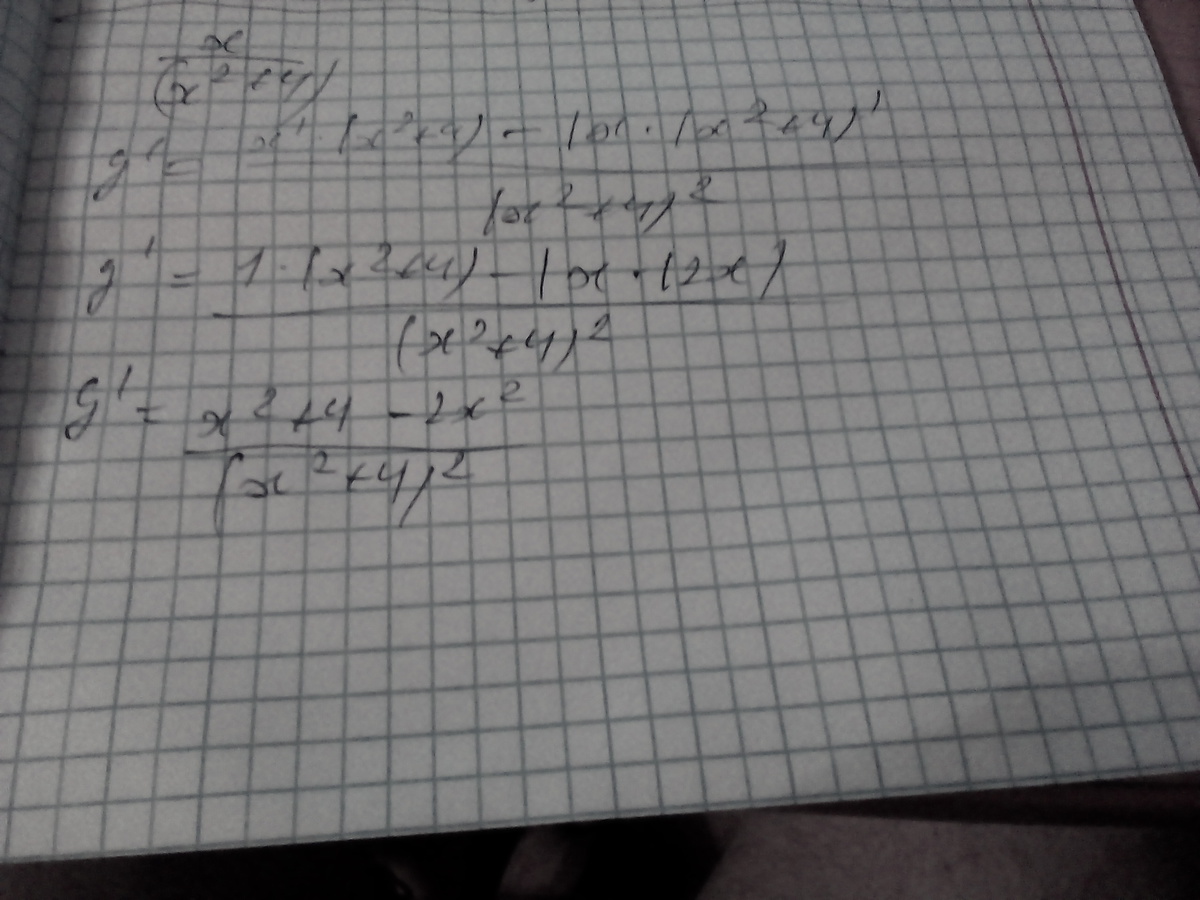 x
(x²+4)
y' = x'·(x²+4) - (x·(x²+4)'
(x²+4)²
y' = 1·(x²+4) - (x·(2x)
(x²+4)²
y' = x²+4 - 2x²
(x²+4)²